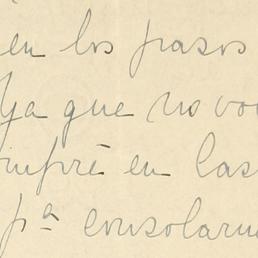 en los pasos
ya que no vo
en las
pª consolarm